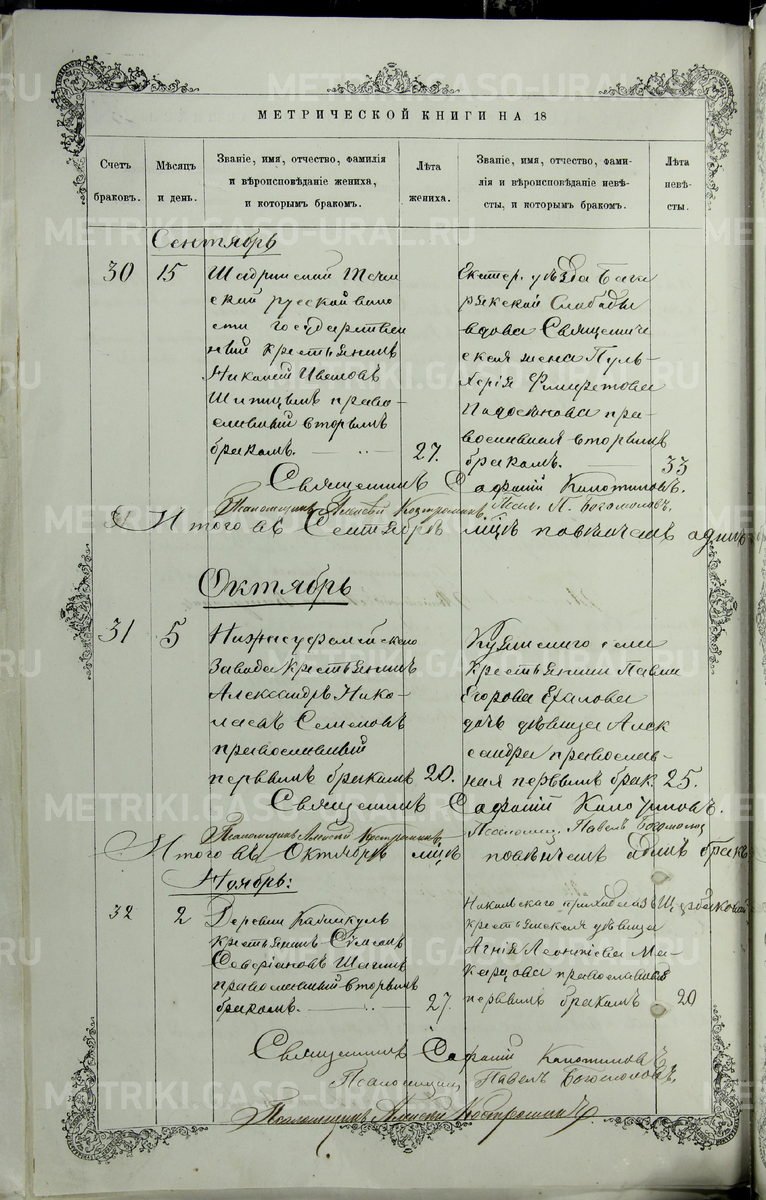 МЕТРИЧЕСКОЙ КНИГИ НА 18
Счетъ браковъ.
Мѣсяцъ и день.
Званіе, имя, отчество, фамилія
и вѣроисповѣданіе жениха,
и которымъ бракомъ.
Лѣта жениха.
Званіе, имя, отчество, фами-
лія и вѣроисповѣданіе невѣ-
сты, и которымъ бракомъ.
Лѣта невѣ-
сты.
Сентябрь
30
15
Шадринской Теченской русской воло
сти государствен
ный крестьянинъ
Николай Ивановъ
Шипицынъ право-
славный вторымъ
бракомъ.
27.
Екатер. уѣзда Бага
рякской Слободы
вдова Священниче
ская жена Пуль-
херія Филаретова
пра-
вославная вторымъ
бракомъ.
33
Священникъ
Псаломщикъ Алексѣй Костроминъ. Псал. П. Богомоловъ.
Итого въ Сентябрѣ м-цѣ повѣнчанъ одинъ
Октябрь
31
5
Нижнеуфалейскаго
завода крестьянинъ
Александръ Нико-
лаевъ Семеновъ
православный
первымъ бракомъ
20.
села
крестьянина Павла
Егорова
дочь дѣвица Алек
сандра православ-
ная первымъ брак.
25.
Священникъ
Псаломщикъ Алексѣй Костроминъ
Псаломщ. Павелъ Богомолов
Итого въ Октябрѣ м-цѣ повѣнчанъ одинъ бракъ
Ноябрь:
32
2
Деревни
крестьянинъ Симеонъ
Северіановъ
православный вторымъ
бракомъ.
27.
Никольскаго прихода
крестьянская дѣвица
Агнія Леонтіева Ма-
карова православная
первымъ бракомъ
20
Священникъ
Псаломщикъ Павелъ Богомоловъ.
Псаломщикъ Алексѣй Костроминъ
METRIKI.GASO-URAL.RU